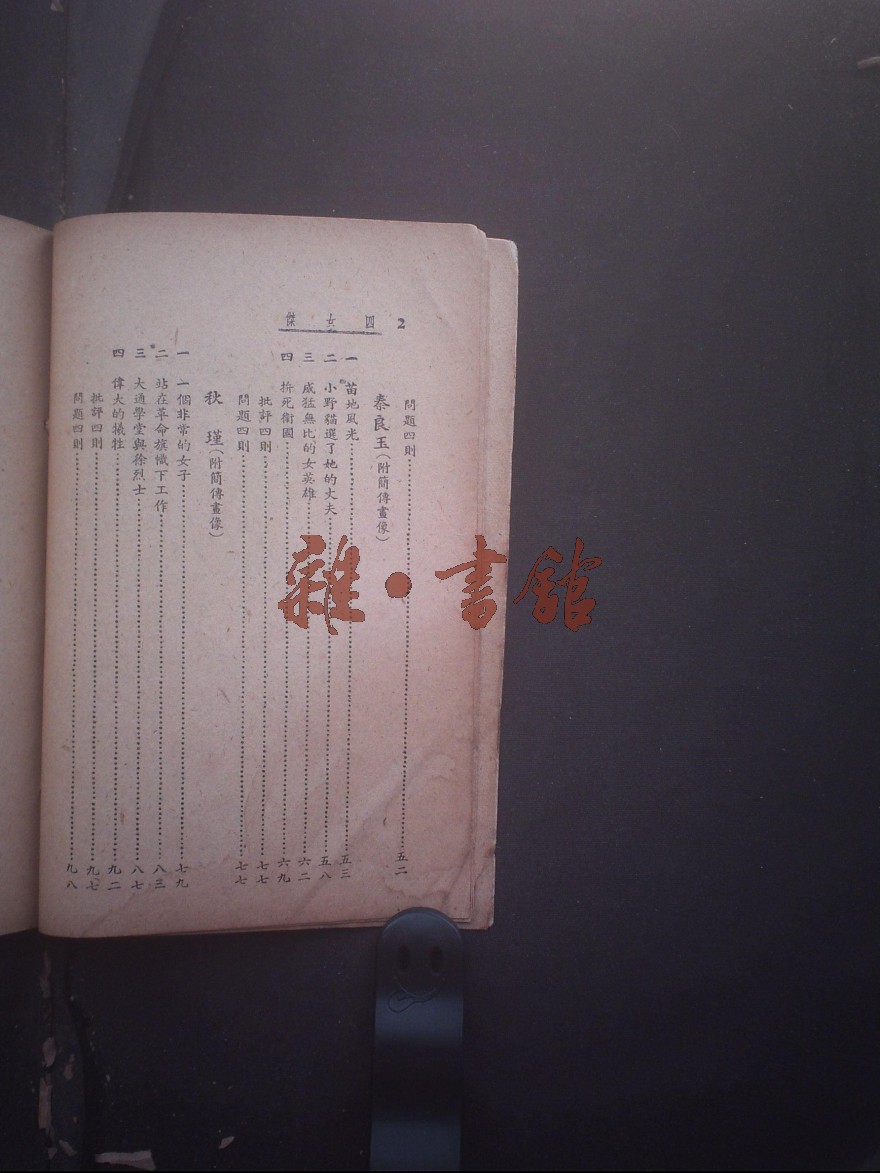 四女傑 2
問題四則……五二
秦良玉(附簡傳畫像)
一 苗地風光……五三
二 小野貓選了她的丈夫……五八
三 威猛無比的女英雄……六二
四 拚死衛國……六九
批評四則……七七
問題四則……七七
秋瑾(附簡傳畫像)
一 一個非常的女子……七九
二 站在革命旗幟下工作……八三
三 大通學堂與徐烈士……八七
四 偉大的犧牲……九二
批評四則……九七
問題四則……九八
雜·書館